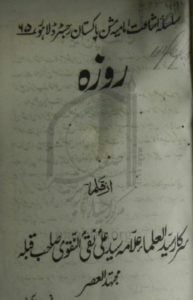 سلسلۂ اشاعت امامیہ مشن پاکستان رجسٹرڈ لاہور ۶۵
روزہ
از قلم
سرکار سید العلماء علامہ سید علی نقی النقوی صاحب قبلہ
مجتہد العصر